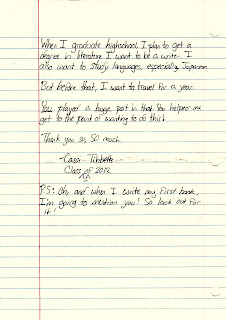 When I graduate highschool I plan to get a
degree in literature I want to be a writer. I
also want to study languages, especially Japanese.
But before that, I want to travel for a year.
You played a huge part in that. You helped me
get to the point of wanting to do this!
Thank you so, SO much.
-Cassi Tibbetts
Class of 2012
^^
P.S: Oh, and when I write my first book,
I'm going to mention you! So look out for
it!